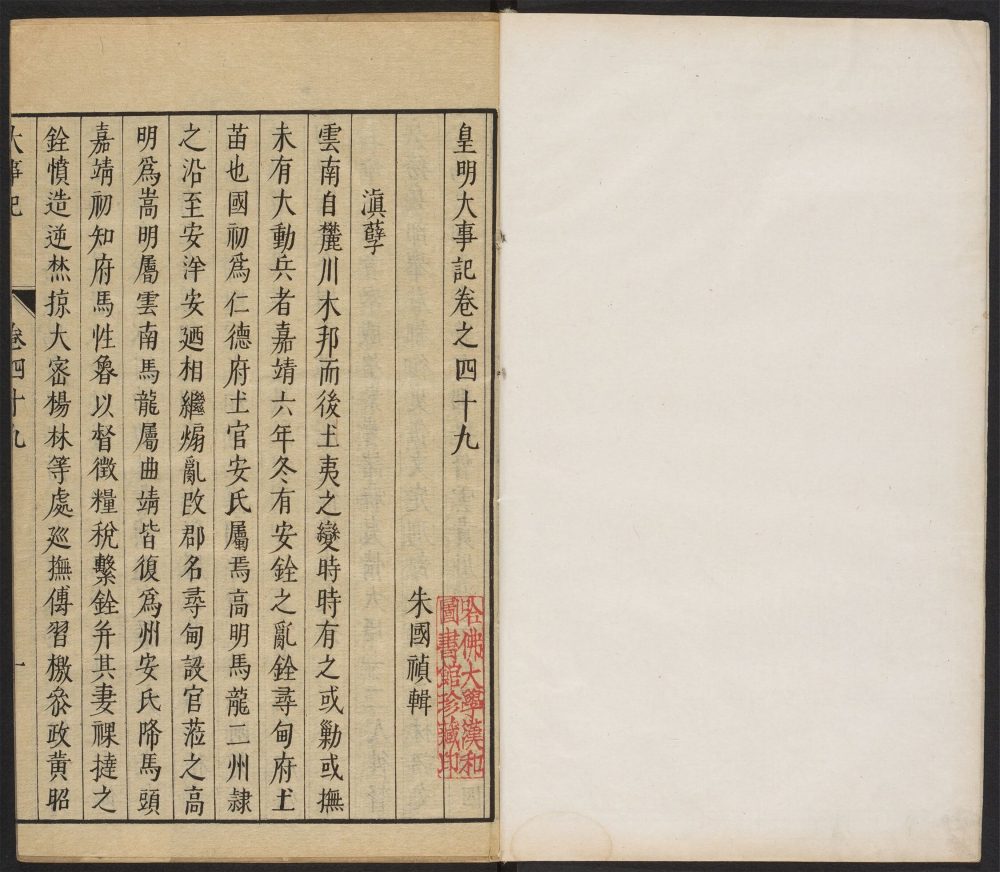 皇明大事記卷之四十九
朱國禎輯
哈佛大學漢和
圖書館珍藏印
滇孽
雲南自麓川木邦而後土夷之變時時有之或勦或撫
未有大動兵者嘉靖六年冬有安銓之亂銓尋甸府土
苗也國初爲仁德府土官安氏屬焉高明馬龍二州隸
之沿至安洋安廼相繼煽亂改郡名尋甸設官蒞之高
明爲嵩明屬雲南馬龍屬曲靖皆復爲州安氏降馬頭
嘉靖初知府馬性魯以督徵糧稅繫銓并其妻裸撻之
銓憤造逆焚掠大密楊林等處巡撫傅習檄叅政黃昭
大事記
卷四十九
一